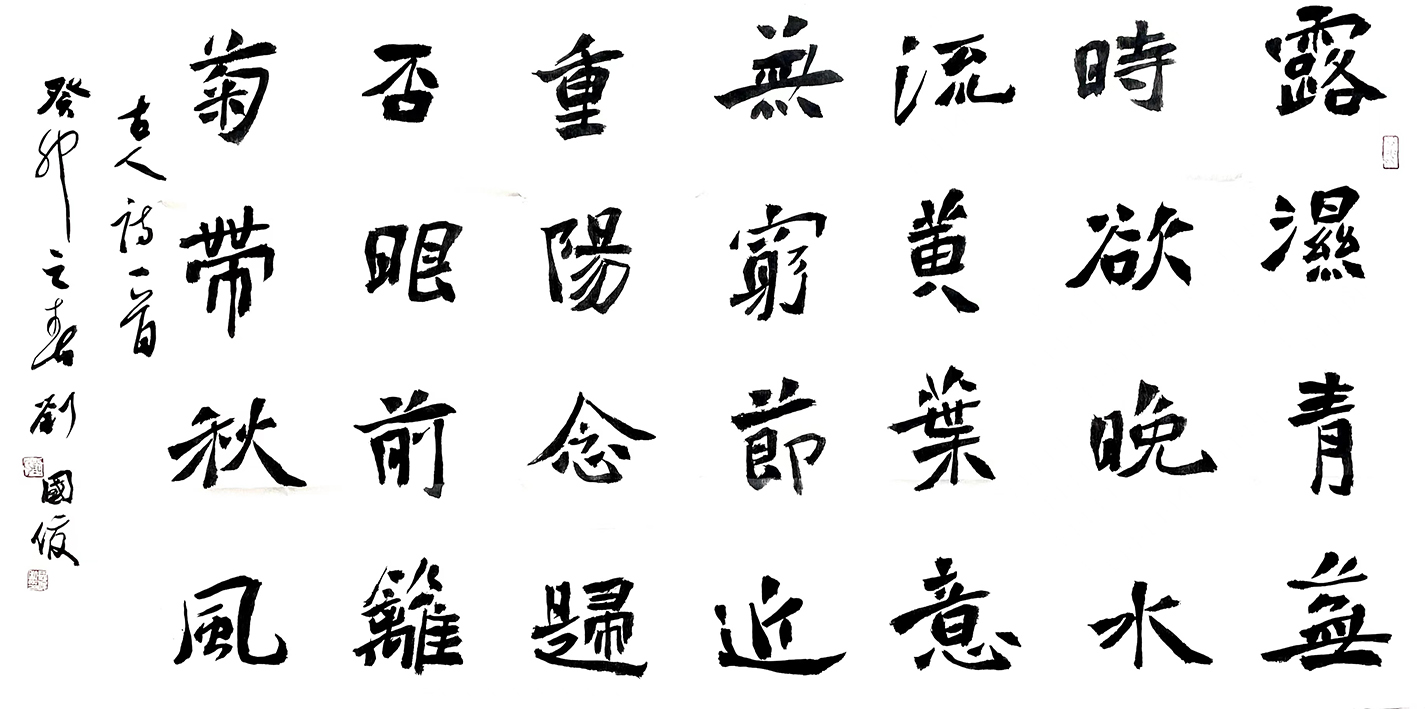 露濕青蕪
時欲晚水
流黄葉意
無窮節近
重陽念歸
否眼前籬
菊帶秋風
古人詩一首
癸卯之春劉國俊